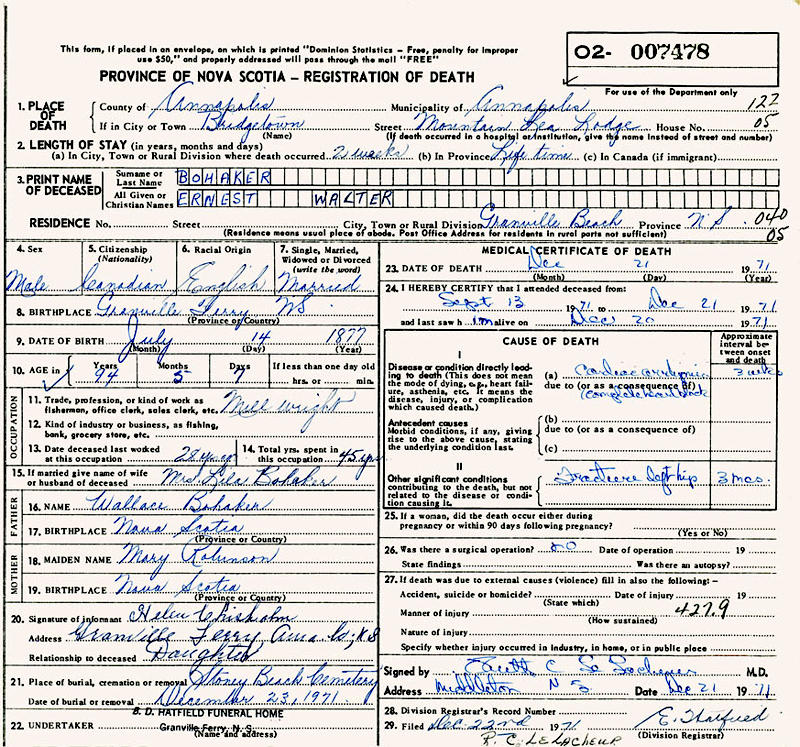 This form, if placed in an envelope, on which is printed "Dominion Statistics – Free, penalty for improper
use $50," and properly addressed will pass through the mail "FREE"
O2- 007478
For use of the Department only
PROVINCE OF NOVA SCOTIA – REGISTRATION OF DEATH
1. PLACE OF DEATH
County of Annapolis Municipality of Annapolis 122
If in City or Town Bridgetown Street Mountain Lea Lodge House No. 05
(Name) (If death occurred in a hospital or institution, give the name instead of street and number)
2. LENGTH OF STAY (in years, months and days)
(a) In City, Town or Rural Division where death occurred 2 weeks (b) In Province Life time (c) In Canada (if immigrant)
3. PRINT NAME OF DECEASED
Surname or Last Name BOHAKER
All Given or Christian Names ERNEST WALTER
RESIDENCE No. Street City, Town or Rural Division Granville Beach Province N S 040
05
(Residence means usual place of abode. Post Office Address for residents in rural parts not sufficient)
4. Sex 5. Citizenship (Nationality) 6. Racial Origin 7. Single, Married, Widowed or Divorced (write the word)
Male Canadian English Married
8. BIRTHPLACE Granville Ferry NS
(Province or Country)
9. DATE OF BIRTH July 14 1877
(Month) (Day) (Year)
10. AGE in Years Months Days If less than one day old
94 5 7 hrs. or min.
OCCUPATION
11. Trade, profession, or kind of work as fisherman, office clerk, sales clerk, etc. Mill wright
12. Kind of industry or business, as fishing, bank, grocery store, etc.
13. Date deceased last worked at this occupation 28 yrs 14. Total yrs. spent in this occupation 45 yrs
15. If married give name of wife or husband of deceased Mrs Lela Bohaker
FATHER
16. NAME Wallace Bohaker
17. BIRTHPLACE Nova Scotia
(Province or Country)
MOTHER
18. MAIDEN NAME Mary Robinson
19. BIRTHPLACE Nova Scotia
(Province or Country)
20. Signature of informant Helen Chisholm
Address Granville Ferry Anna Co, N S
Relationship to deceased Daughter
21. Place of burial, cremation or removal Stoney Beach Cemetery
Date of burial or removal December 23, 1971
22. UNDERTAKER B. D. HATFIELD FUNERAL HOME
Granville Ferry, N. S.
(Name and address)
MEDICAL CERTIFICATE OF DEATH
23. DATE OF DEATH Dec 21 1971
(Month) (Day) (Year)
24. I HEREBY CERTIFY that I attended deceased from:
Sept 13 1971 to Dec 21 1971
and last saw h im alive on Dec 20 1971
CAUSE OF DEATH
Approximate interval between onset and death
I
Disease or condition directly leading to death (This does not mean the mode of dying, e.g., heart failure, asthenia, etc. It means the disease, injury, or complication which caused death.)
(a) Cardiac arrythmia 3 wks
due to (or as a consequence of)
(complete heart block
Antecedent causes
Morbid conditions, if any, giving rise to the above cause, stating the underlying condition last.
(b)
due to (or as a consequence of)
(c)
II
Other significant conditions contributing to the death, but not related to the disease or condition causing it.
Fracture left hip 3 mos.
25. If a woman, did the death occur either during pregnancy or within 90 days following pregnancy?
(Yes or No)
26. Was there a surgical operation? no Date of operation 19
State findings Was there an autopsy?
27. If death was due to external causes (violence) fill in also the following:–
Accident, suicide or homicide? Date of injury 19
(State which) 427.9
Manner of injury
(How sustained)
Nature of injury
Specify whether injury occurred in industry, in home, or in public place
Signed by C M.D.
Address Middleton N S Date Dec 21 1971
28. Division Registrar's Record Number
29. Filed Dec. 22nd 1971 E. Hatfield
(Division Registrar)
R. C. LELACHEUR